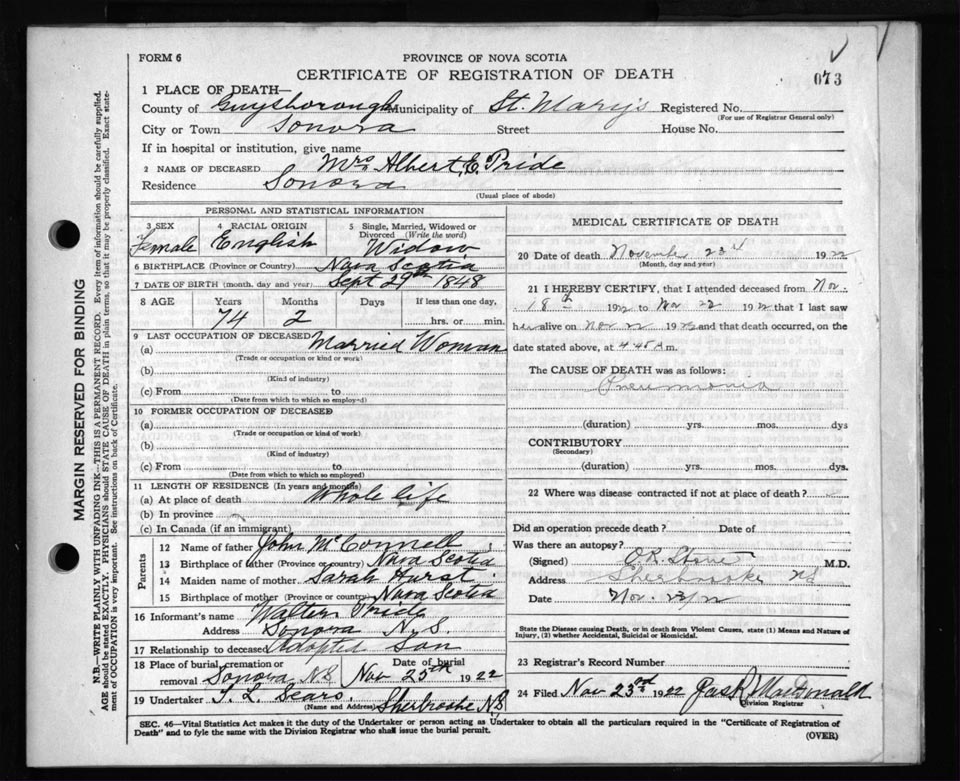 FORM 6
PROVINCE OF NOVA SCOTIA
CERTIFICATE OF REGISTRATION OF DEATH
073
1 PLACE OF DEATH—
County of Guysborough Municipality of St. Mary's Registered No.
(For use of Registrar General only)
City or Town Sonora Street House No.
If in hospital or institution, give name
2 NAME OF DECEASED Mrs Albert E. Pride
Residence Sonora
(Usual place of abode)
PERSONAL AND STATISTICAL INFORMATION
3 SEX Female
4 RACIAL ORIGIN English
5 Single, Married, Widowed or Divorced (Write the word) Widow
6 BIRTHPLACE (Province or Country) Nova Scotia
7 DATE OF BIRTH (month, day and year) Sept 29th 1848
8 AGE Years Months Days If less than one day,
74 2 hrs. or min.
9 LAST OCCUPATION OF DECEASED Married Woman
(a)
(Trade or occupation or kind of work)
(b)
(Kind of industry)
(c) From to
(Date from which to which so employed)
10 FORMER OCCUPATION OF DECEASED
(a)
(Trade or occupation or kind of work)
(b)
(Kind of industry)
(c) From to
(Date from which to which so employed)
11 LENGTH OF RESIDENCE (In years and months)
(a) At place of death Whole life
(b) In province
(c) In Canada (if an immigrant)
Parents
12 Name of father John McConnell
13 Birthplace of father (Province or country) Nova Scotia
14 Maiden name of mother Sarah Hurst
15 Birthplace of mother (Province or country) Nova Scotia
16 Informant's name Walter Pride
Address Sonora N.S.
17 Relationship to deceased Adopted Son
18 Place of burial, cremation or removal Sonora NS Date of burial Nov 25th 1922
19 Undertaker T. L. Sears.
(Name and Address) Sherbrooke N.S
MEDICAL CERTIFICATE OF DEATH
20 Date of death November 22 1922
(Month, day and year)
21 I HEREBY CERTIFY, that I attended deceased from Nov.
18th 1922 to Nov 22 1922 that I last saw
her alive on Nov 22 1922 and that death occurred, on the
date stated above, at 4.45 A m.
The CAUSE OF DEATH was as follows:
Pneumonia
(duration) yrs. mos. dys
CONTRIBUTORY
(Secondary)
(duration) yrs. mos. dys.
22 Where was disease contracted if not at place of death?
Did an operation precede death? Date of
Was there an autopsy?
(Signed) M.D.
Address Sherbrooke NS
Date Nov. 23/22
State the Disease causing Death, or in death from Violent Causes, state (1) Means and Nature of
Injury, (2) whether Accidental, Suicidal or Homicidal.
23 Registrar's Record Number
24 Filed Nov 23rd 1922 MacDonald
Division Registrar
SEC. 46—Vital Statistics Act makes it the duty of the Undertaker or person acting as Undertaker to obtain all the particulars required in the "Certificate of Registration of
Death" and to fyle the same with the Division Registrar who shall issue the burial permit.
(OVER)
MARGIN RESERVED FOR BINDING
N.B.—WRITE PLAINLY WITH UNFADING INK—THIS IS A PERMANENT RECORD. Every item of information should be carefully supplied.
AGE should be stated EXACTLY. PHYSICIANS should STATE CAUSE OF DEATH in plain terms, so that it may be properly classified. Exact state-
ment of OCCUPATION is very important. See instructions on back of Certificate.